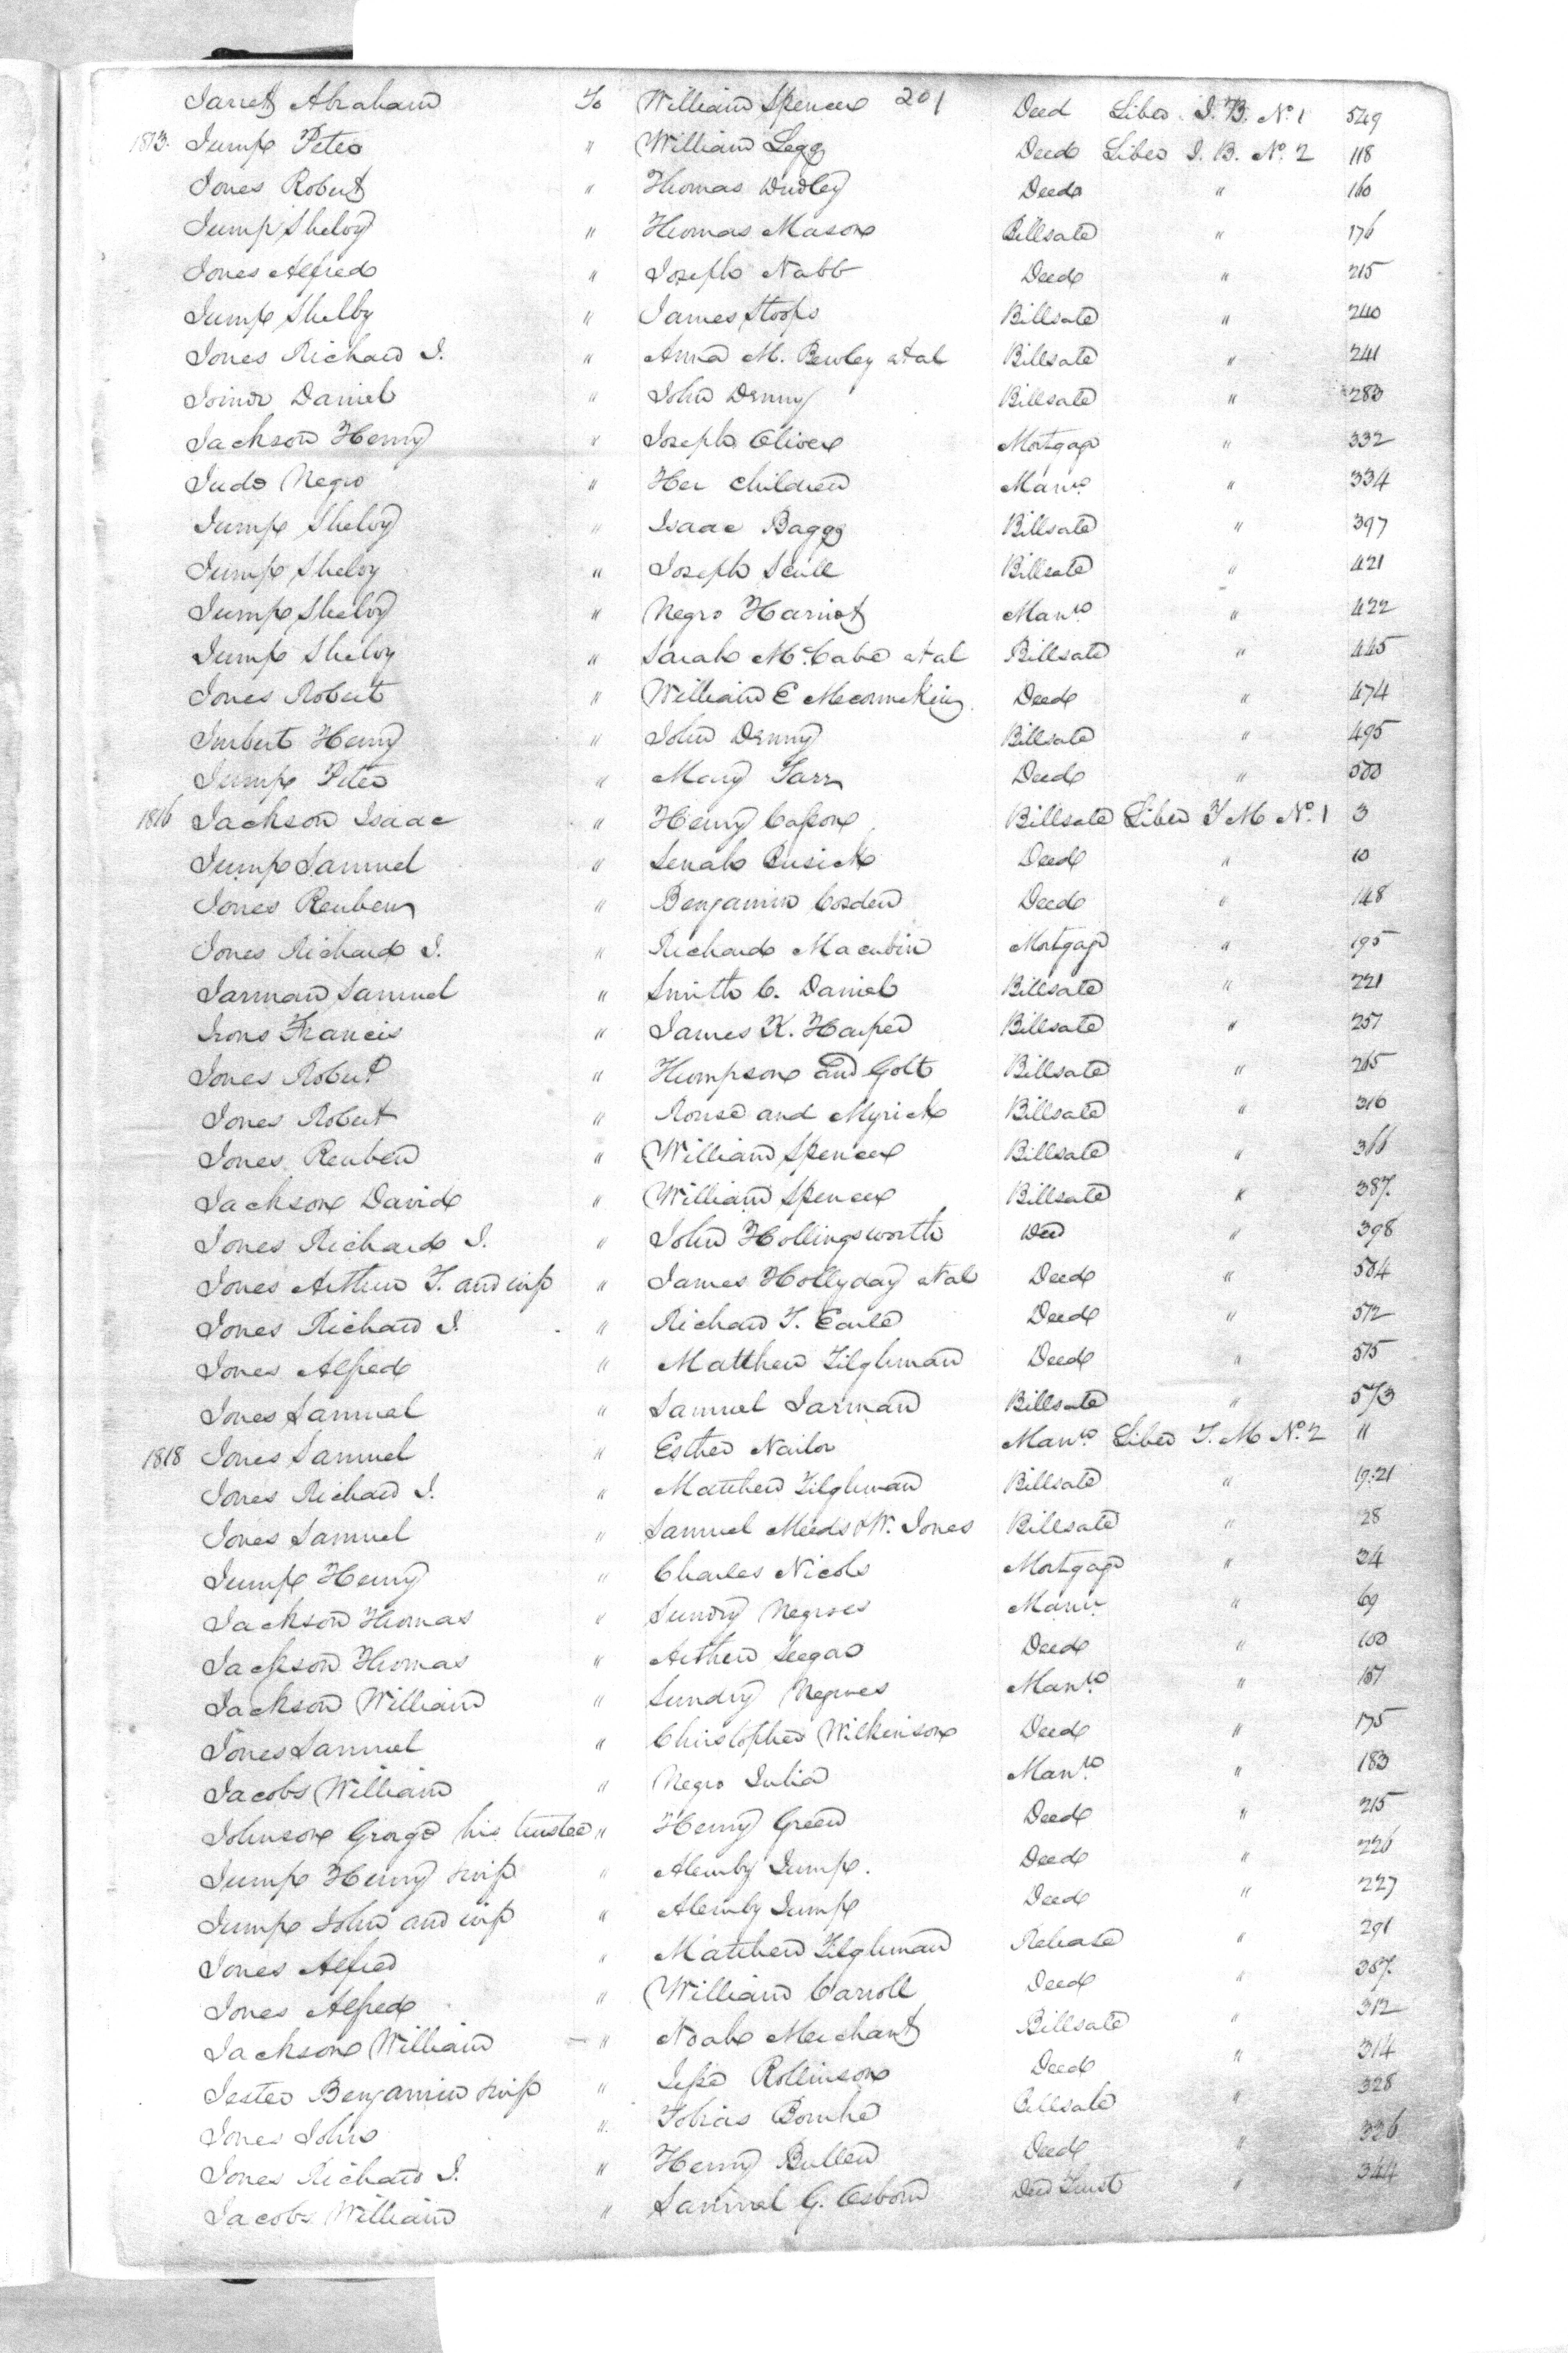 Jarrett Abraham To William Spencer 201 Deed Liber I.B. No. 1 549
1813. Jump Peter " William Legg Deed Liber I.B. No. 2 118
Jones Robert " Thomas Dudley Deed " 160
Jump Shelby " Thomas Mason Billsale " 176
Jones Alfred " Joseph Nabb Deed " 215
Jump Shelby " James Stoops Billsale " 240
Jones Richard I. " Anna M. Bewley et al Billsale " 241
Joiner Daniel " John Denny Billsale " 283
Jackson Henry " Joseph Oliver Mortgage " 332
Jude Negro " Her children Mann. " 334
Jump Shelby " Isaac Baggs Billsale " 397
Jump Shelby " Joseph Scull Billsale " 421
Jump Shelby " Negro Harriot Man.n " 422
Jump Shelby " Sarah McCabe et al Billsale " 445
Jones Robert " William E Meconnekin Deed " 474
Imbert Henry " John Denny Billsale " 495
Jump Peter " Mary Tarr Deed " 500
1816 Jackson Isaac " Henry Casson Billsale Liber T M No. 1 3
Jump Samuel " Senah Busick Deed " 10
Jones Reuben " Benjamin Cosden Deed " 148
Jones Richard I. " Richard Macubin Mortgage " 195
Jarman Samuel " Smith C. Daniel Billsale " 221
Irons Francis " James K. Harper Billsale " 257
Jones Robert " Thompson and Golt Billsale " 265
Jones Robert " Rouse and Myrick Billsale " 316
Jones Reuben " William Spencer Billsale " 366
Jackson David " William Spencer Billsale " 387.
Jones Richard I. " John Hollingsworth Deed " 398
Jones Arthur T. and wife " James Hollyday et al Deed " 504
Jones Richard I. " Richard T. Earle Deed " 512
Jones Alfred " Matthew Tilghman Deed " 515
Jones Samuel " Samuel Jarman Billsale " 573
1818 Jones Samuel " Esther Nailor Man.n Liber T. M No. 2 11
Jones Richard I. " Matthew Tilghman Billsale " 19.21
Jones Samuel " Samuel Meeds & W. Jones Billsale " 28
Jump Henry " Charles Nicols Mortgage " 34
Jackson Thomas " Sundry Negroes Man.n " 69
Jackson Thomas " Arthur Seegar Deed " 100
Jackson William " Sundry Negroes Man.n " 107
Jones Samuel " Christopher Wilkinson Deed " 175
Jacobs William " Negro Julia Man.n " 183
Johnson George his trustee " Henry Green Deed " 215
Jump Henry & wife " Alemby Jump. Deed " 226
Jump John and wife " Alemby Jump Deed " 227
Jones Alfred " Matthew Tilghman Release " 291
Jones Alfred " William Carroll Deed " 307.
Jackson William " Noah Merchant Billsale " 312
Jester Benjamin & wife " Jesse Rollinson Deed " 314
Jones John " Tobias Bourke Billsale " 328
Jones Richard I. " Henry Bullen Deed " 336
Jacobs William " Samuel G. Osborn Deed Trust " 344